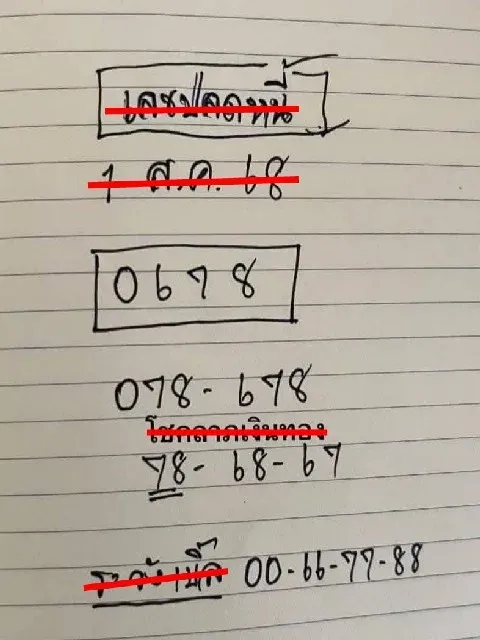 เลขปลดหนี้
1 ส.ค. 68
0678
078 - 678
โชคลาภเงินทอง
78 - 68 - 67
ระวังเบิ้ล 00-66-77-88